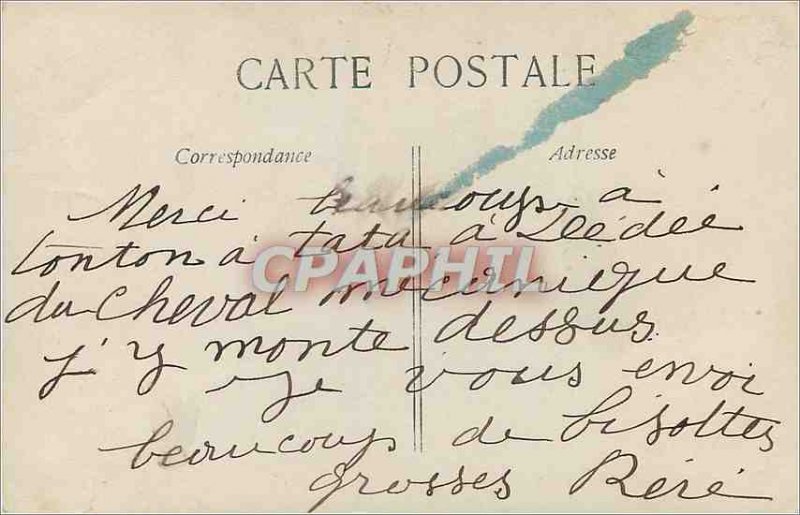 CARTE POSTALE
Correspondance
Adresse
Merci beaucoup à
tonton à tata à Dédée
du cheval mecanique
j'y monte dessus
Je vous envoi
beaucoup de bisottes
grosses Réré
CPAPHIL